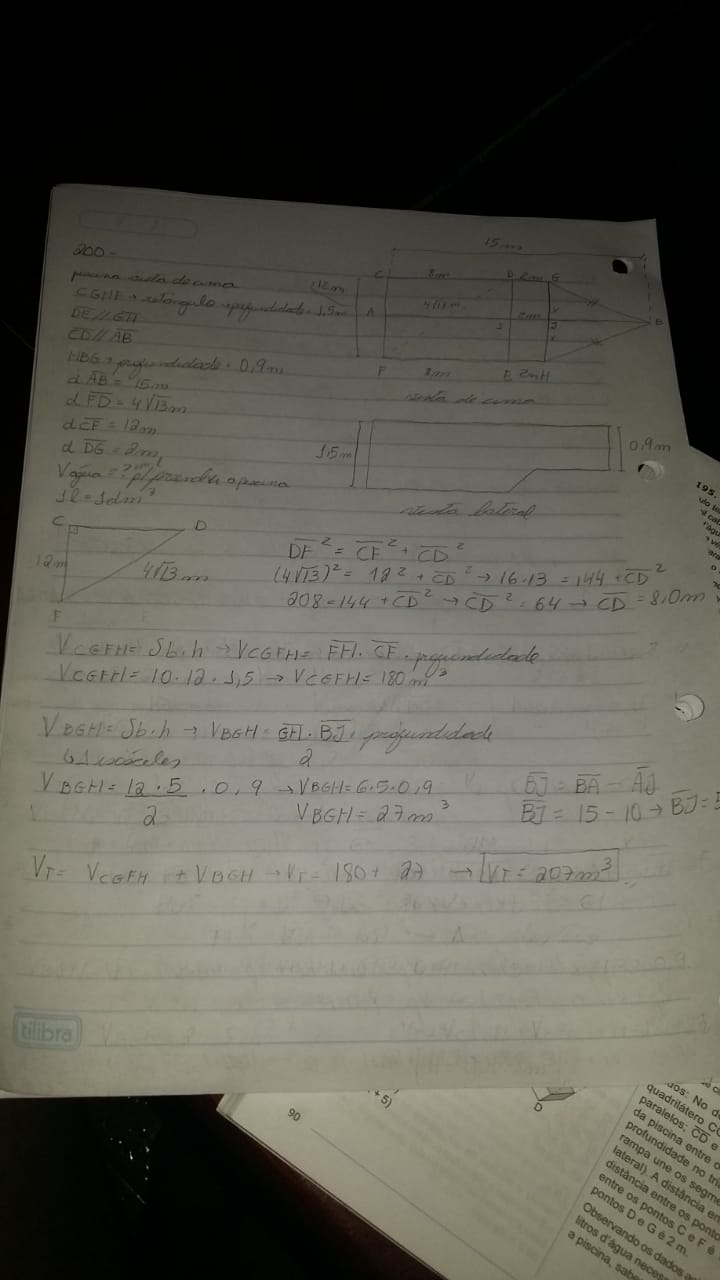 200-
15m
piscina vista de cima
CGHF → retângulo → profundidade = 1,5m
DE // GH
CD // AB
HBG → profundidade = 0,9m
d AB = 15m
d FD = 4√13 m
d CF = 12m
d DG = 2m
V água = ? p/ preencher a piscina
1l = 1dm³
12m
C 8m D 2m G
A 4√13m I 2m J B
x
x
F 8m E 2m H
vista de cima
1,5m
0,9m
vista lateral
C D
12m
4√13 m
F
DF² = CF² + CD²
(4√13)² = 12² + CD² → 16.13 = 144 + CD²
208 = 144 + CD² → CD² = 64 → CD = 8,0m
VCGFH = Sb.h → VCGFH = FH . CF . profundidade
VCGFH = 10.12.1,5 → VCGFH = 180m³
VBGH = Sb.h → VBGH = GH . BJ . profundidade
2
isósceles
VBGH = 12.5 . 0,9 → VBGH = 6.5.0,9
2
VBGH = 27m³
BJ = BA - AJ
BJ = 15 - 10 → BJ = 5
VT = VCGFH + VBGH → VT = 180 + 27 → VT = 207m³
tilibra
90
+ 5)
D
195.
dos: No d
quadrilátero CG
paralelos; CD e
da piscina entre o
profundidade no tri
rampa une os segme
lateral). A distância en
distância entre os ponto
entre os pontos C e F é
pontos D e G é 2 m.
Observando os dados a
litros d'água neces
a piscina, sab